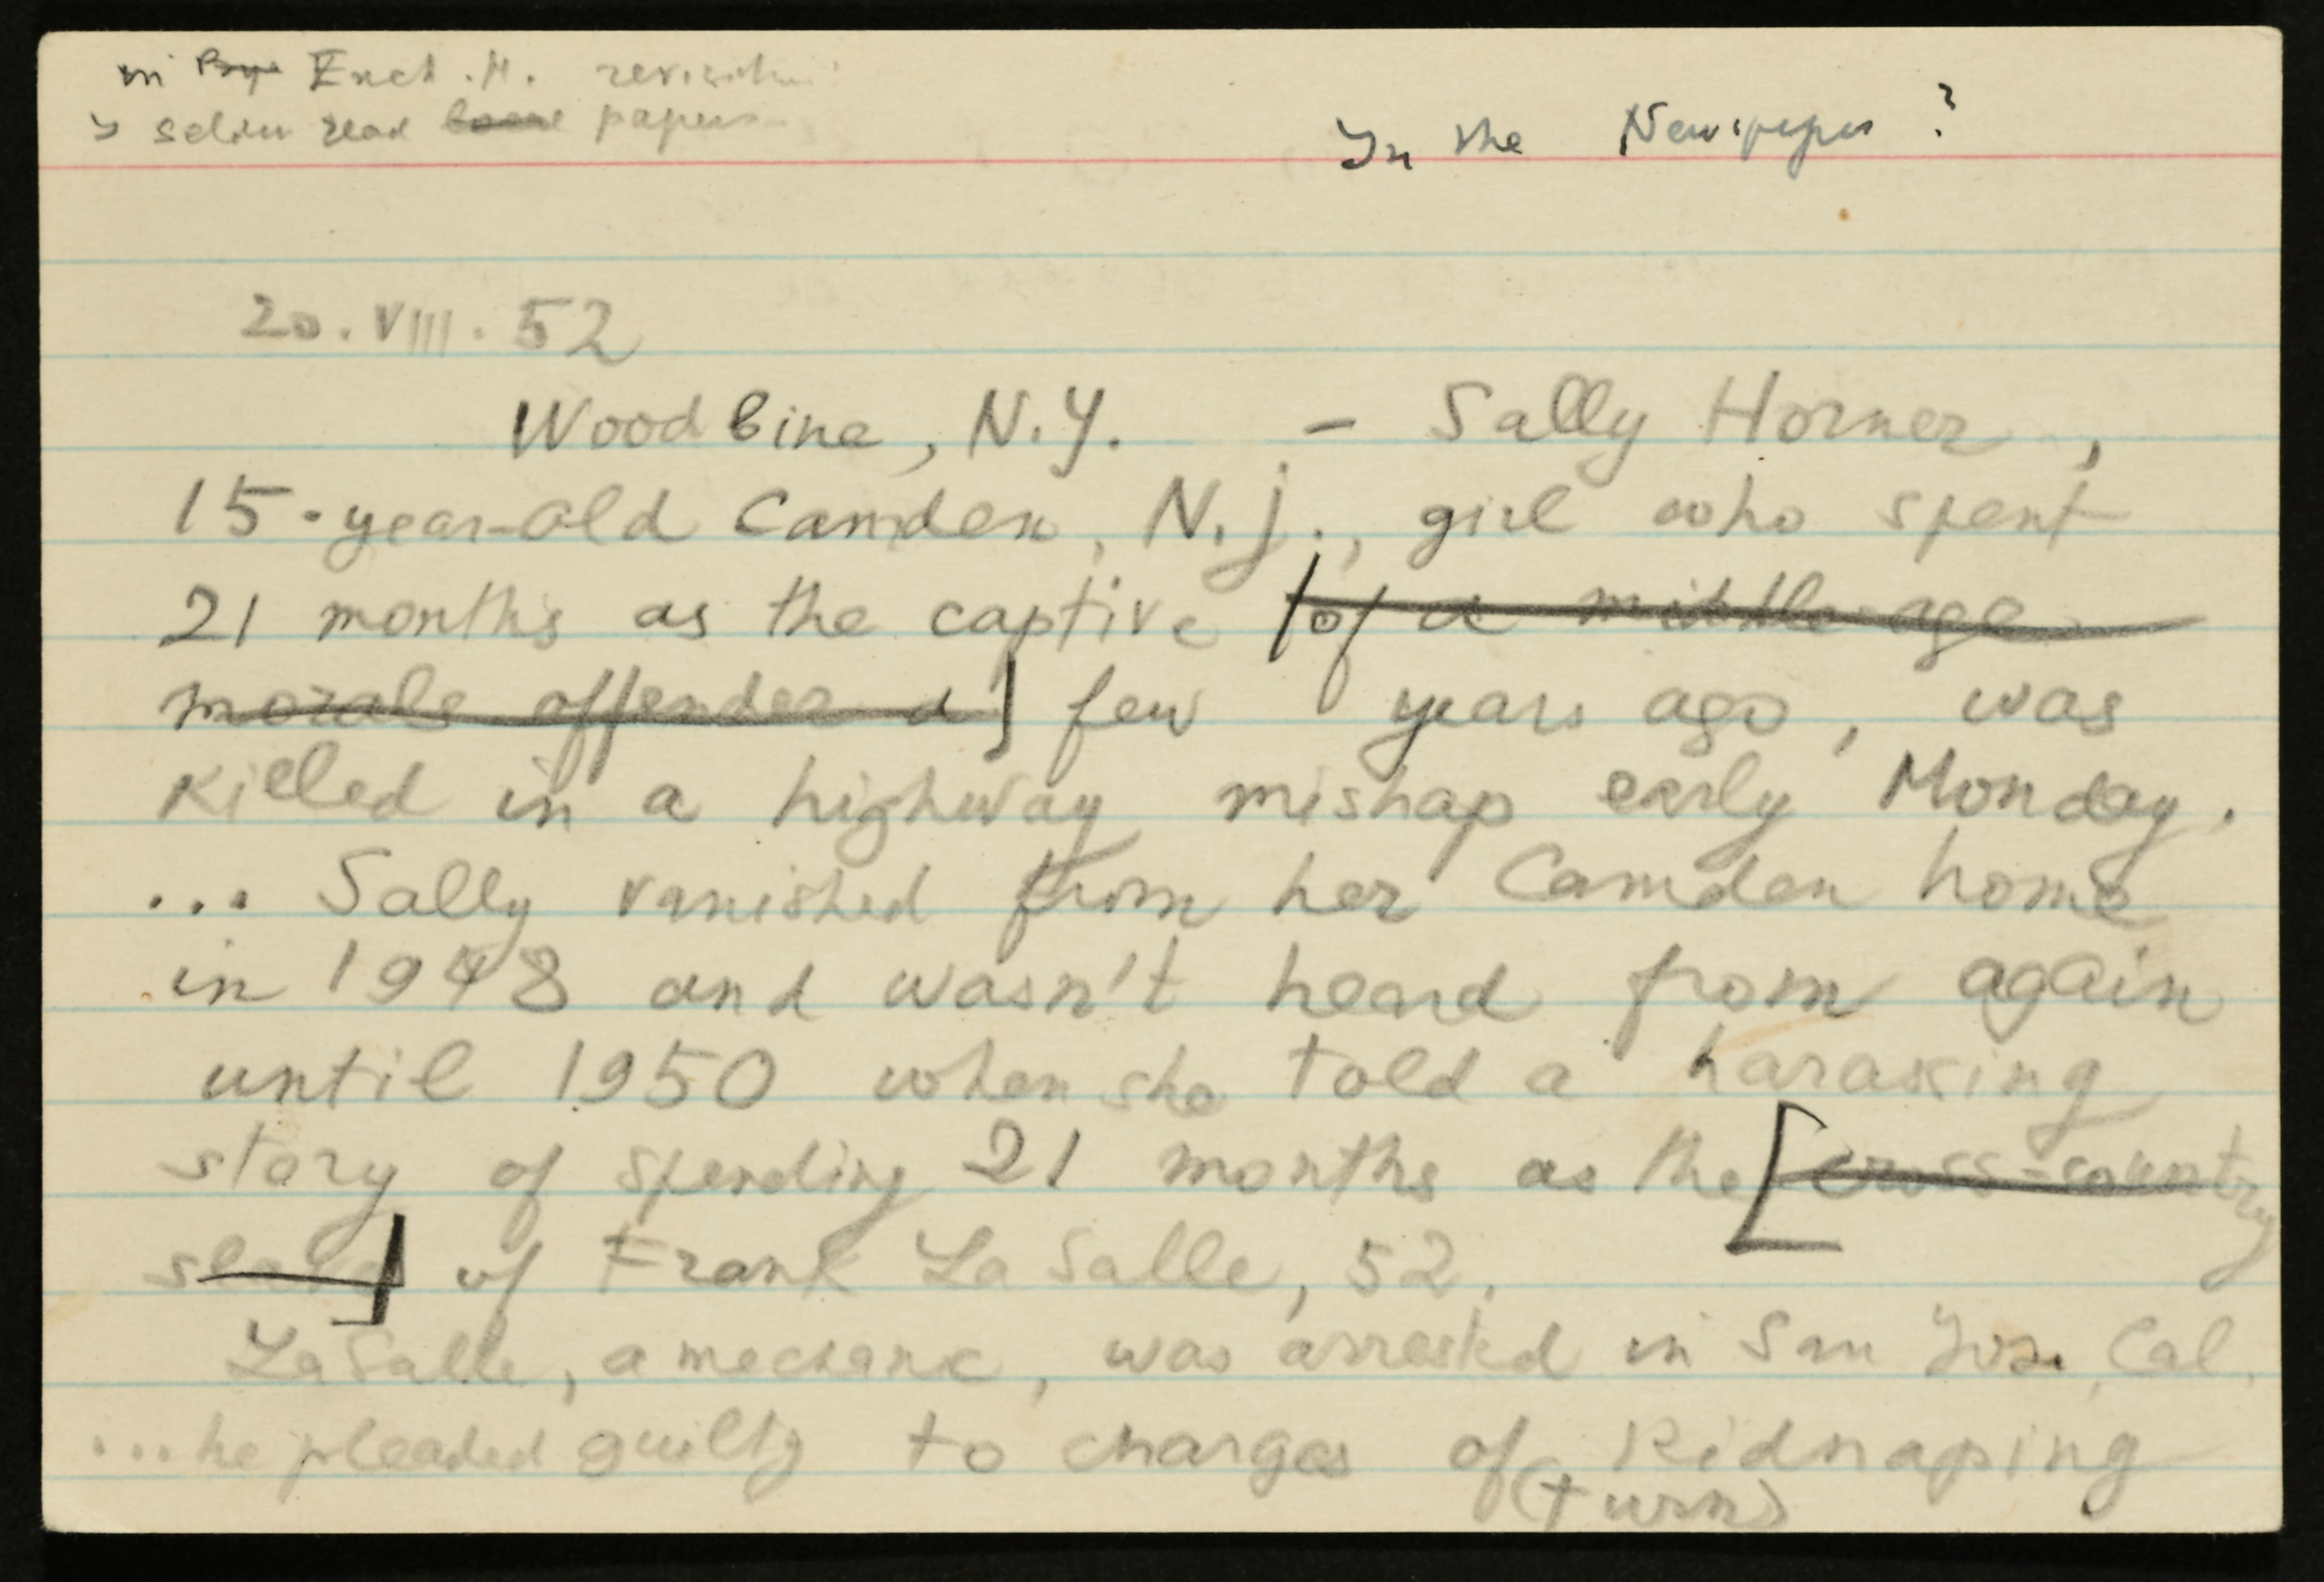 in Ench. H. revisited
In the Newspaper ?
> seldom read papers
20. VIII. 52
Woodbine, N.Y. – Sally Horner,
15-year-old Camden, N.J., girl who spent
21 months as the captive [of a middle-age
morals offender a] few years ago, was
killed in a highway mishap early Monday.
... Sally vanished from her Camden home
in 1948 and wasn't heard from again
until 1950 when she told a haraxing
story of spending 21 months as the [cross-country
slave] of Frank La Salle, 52.
LaSalle, a mechanic, was arrested in San Jose, Cal.
... he pleaded guilty to charges of Kidnaping
(turn)